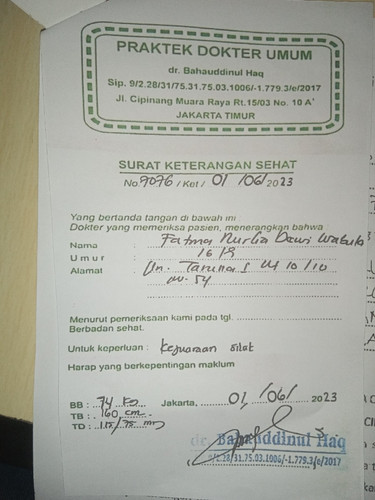 PRAKTEK DOKTER UMUM
dr. Bahauddinul Haq
Sip. 9/2.28/31/75.31.75.03.1006/-1.779.3/e/2017
Jl. Cipinang Muara Raya Rt.15/03 No. 10 A'
JAKARTA TIMUR
SURAT KETERANGAN SEHAT
No.9076 / Ket / 01 /06/2023
Yang bertanda tangan di bawah ini :
Dokter yang memeriksa pasien, menerangkan bahwa
Nama : Fatma Dewi
Umur : 16
Alamat : Jln. Taruna I 10/10
no. 54
Menurut pemeriksaan kami pada tgl.
Berbadan sehat.
Untuk keperluan : Kejuaraan silat
Harap yang berkepentingan maklum
BB : 74 kg Jakarta, 01, /06/ 2023
TB : 160 cm
TD : 115/75 mm
dr. Bahauddinul Haq
9/2.28/31.75.03.1006/-1.779.3/e/2017